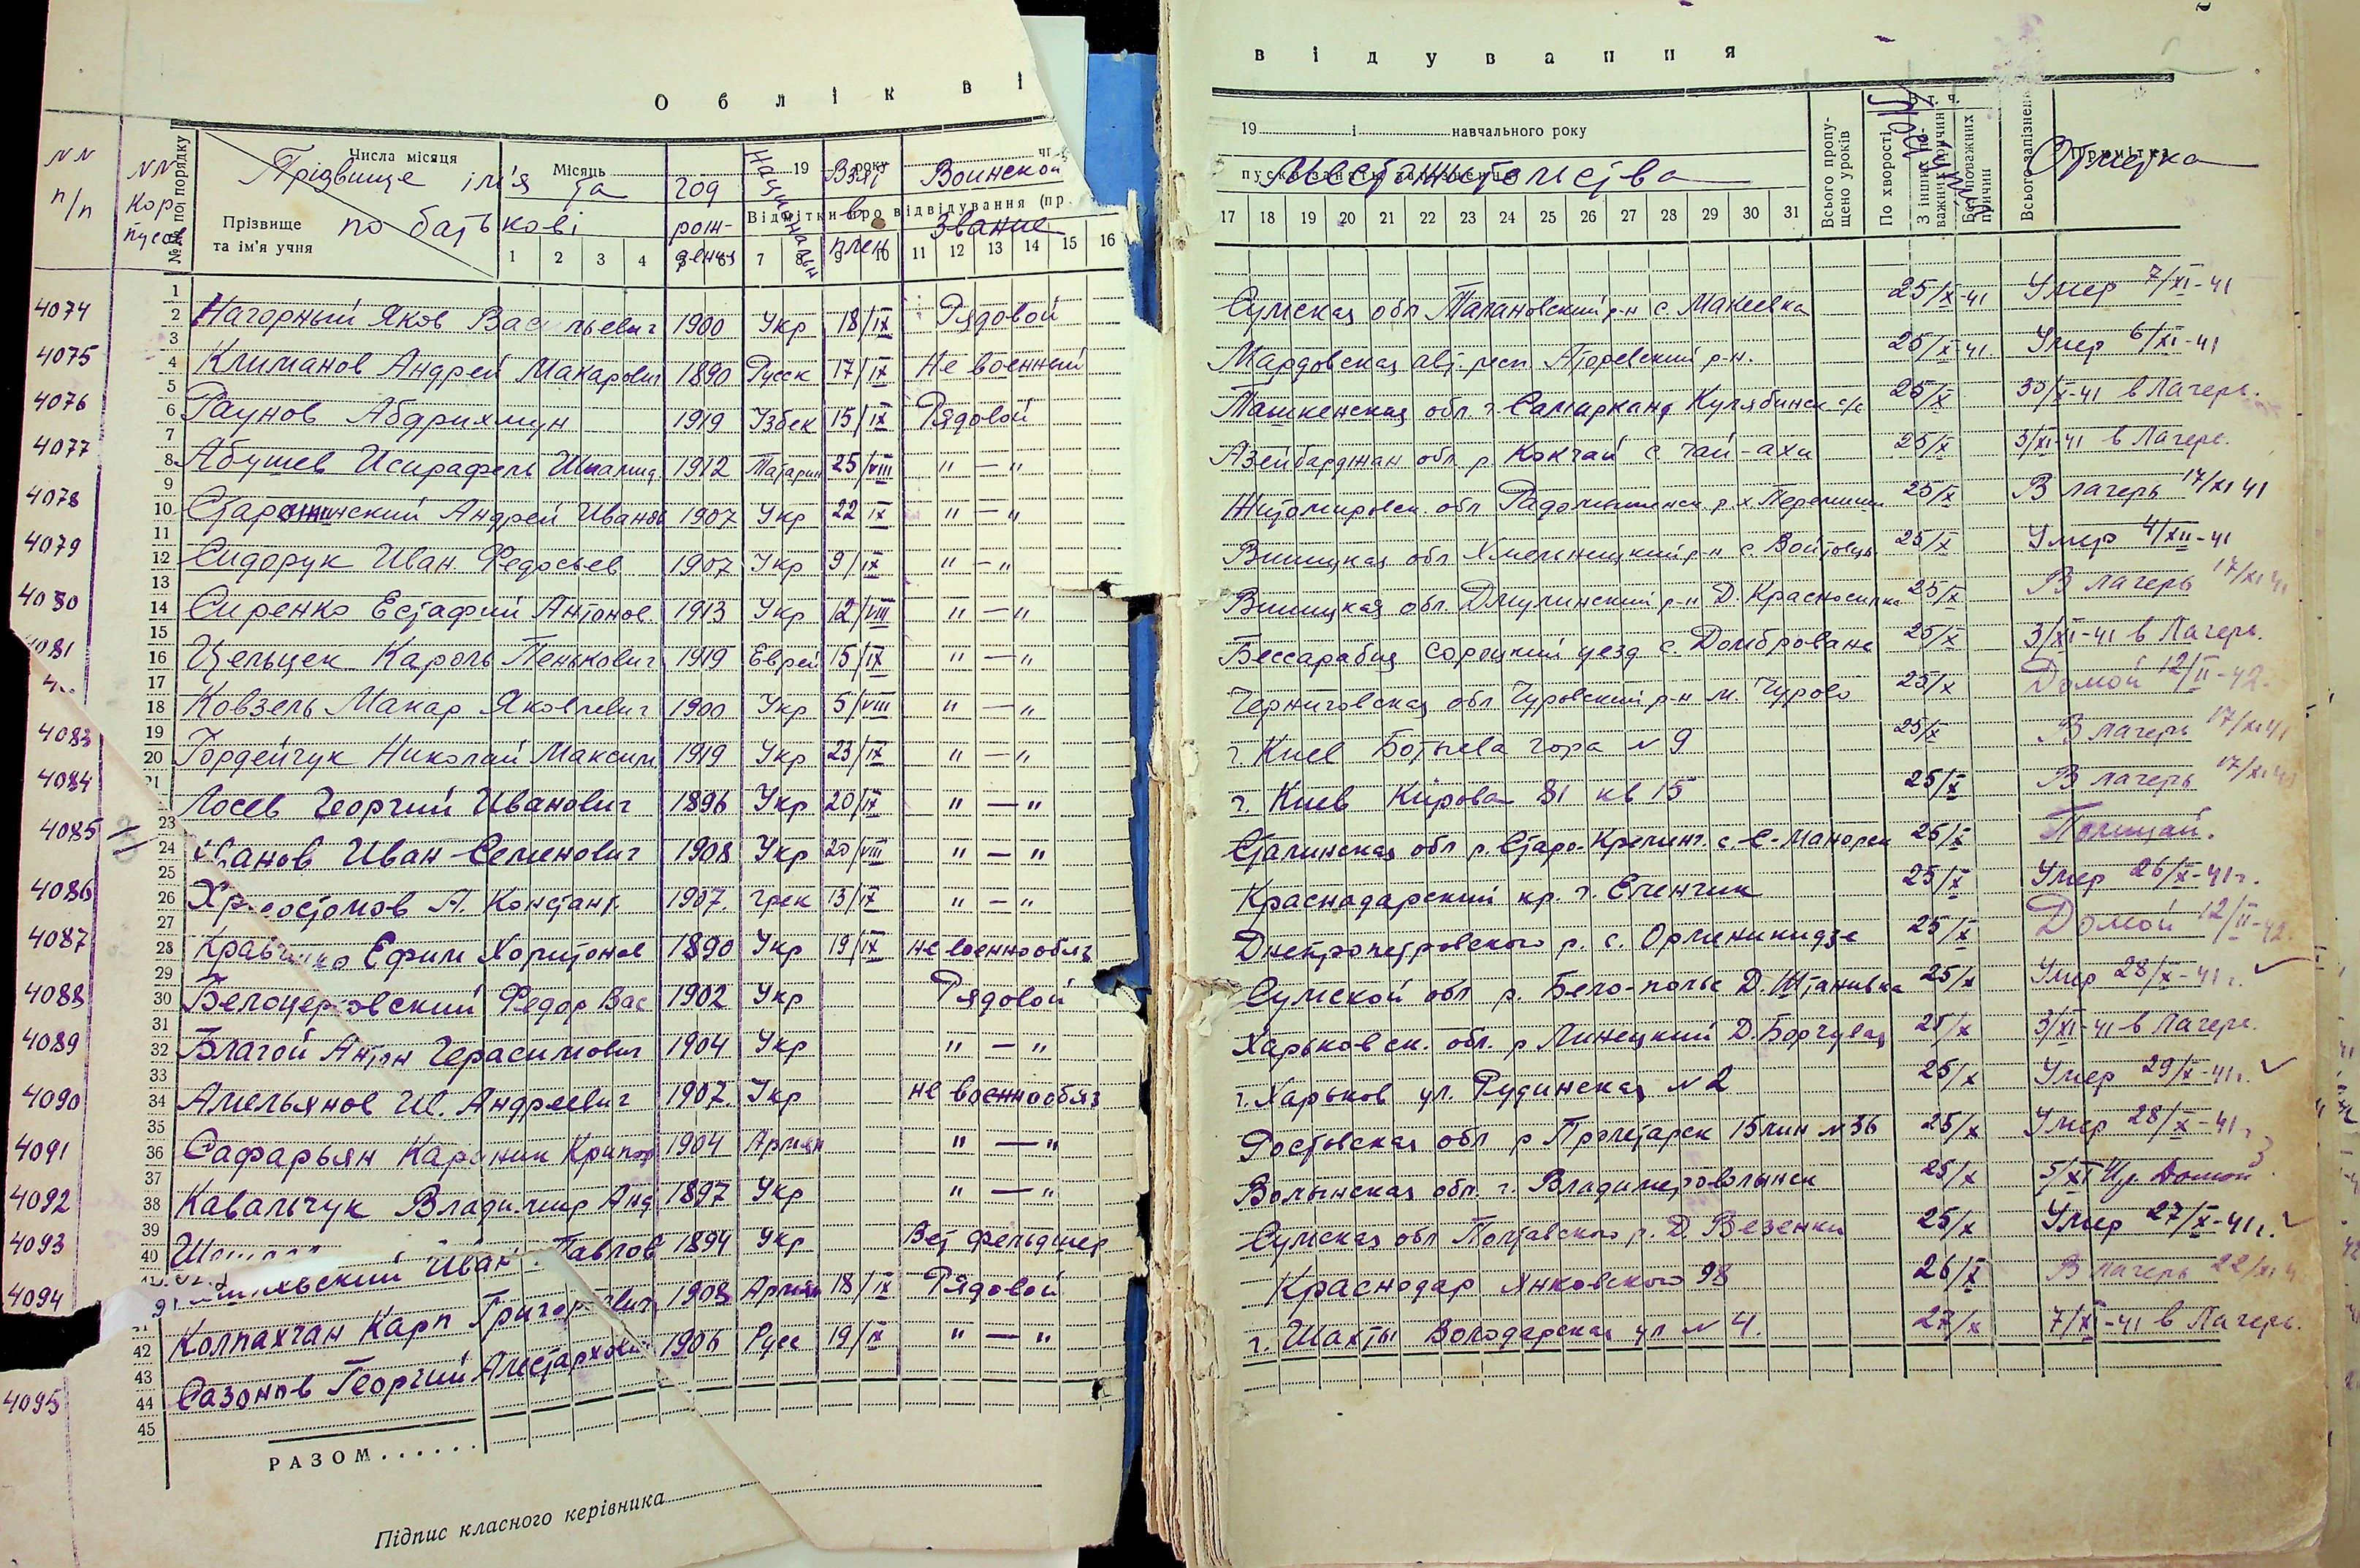 О б л і к в і
в і д у в а н н я
NN п/п
NN Корпусов
№№ по порядку
Числа місяця
Прізвище ім'я та по батькові
Прізвище та ім'я учня
Місяць
год рождения
Национальн
19 року
Взят в плен
Воинское Звание
Відмітки про відвідування (пр
1 2 3 4 7 8 9 10 11 12 13 14 15 16
19 і навчального року
Местожительства
17 18 19 20 21 22 23 24 25 26 27 28 29 30 31
Всього пропущено уроків
По хворості
Всього запізнень
Отметка
4074 Нагорный Яков Васильевич 1900 Укр 18/IX Рядовой Сумская обл Талановский р-н с. Макеевка 25/X-41 Умер 7/XI-41
4075 Климанов Андрей Макарович 1890 Русск 17/IX Не военный Мардовская авт. респ. Атяревский р-н. 25/X-41 Умер 6/XI-41
4076 Раунов Абдрихмун 1919 Узбек 15/IX Рядовой Ташкенская обл. г. Самарканд Кулябинск с/с 25/X 30/X-41 в Лагерь.
4077 Абушев Исирафель 1912 Татарин 25/VIII " — " Азейбарджан обл р. Кокчай с Чай-ахи 25/X 3/XI-41 в Лагерь.
4078 Андрей Иванов 1907 Укр 22 IX " — " Житомировск. обл 25/X В лагерь 17/XI 41
4079 Сидорук Иван Федосьев 1907 Укр 9/IX " — " Виницкая обл Хмельницкий р-н с. Войтовцы 25/X Умер 4/XII-41
4080 Сиренко Естафий Антонов. 1913 Укр 12/VIII " — " Виницкая обл. Джулинский р-н Д. Красноселка 25/X В лагерь 17/XI 41
4081 Цельцек Кароль Пенькович 1919 Еврей 15/IX " — " Бессарабия Сороцкий уезд с. Домброване 25/X 3/XI-41 в Лагерь.
Ковзель Макар Яковлевич 1900 Укр 5/VIII " — " Черниговская обл Чуровский р-н м. Чурово 25/X Домой 12/II-42.
4083 Гордейчук Николай Максим 1919 Укр 23/IX " — " г. Киев Батыева гора N 9 25/X В лагерь 17/XI 41
4084 Лосев Георгий Иванович 1896 Укр 20/IX " — " г. Киев Кирова 81 кв 15 25/X В лагерь 17/XI 41
4085 Иванов Иван Семенович 1908 Укр 20/VIII " — " Сталинская обл р. Старо-Кременч. 25/X Полицай.
4086 Констант. 1907. Грек 13/IX " — " Краснодарский кр. г. Еленчик 25/X Умер 26/X-41г.
4087 Кравченко Ефим Харитонов 1890 Укр 19/IX не военнообяз Днепропетровского р. с. Орженикидзе 25/X Домой 12/II-42.
4088 Белоцерковский Федор Вас 1902 Укр Рядовой Сумской обл р. Бело-полье Д. Штановка 25/X Умер 28/X-41г.
4089 Благой Антон Герасимович 1904 Укр " — " Харьковск. обл. 25/X 3/XI-41 в Лагерь.
4090 Амельянов Ив. Андреевич 1907. Укр не военнообяз г. Харьков ул. Рудинская N 2 25/X Умер 29/X-41г.
4091 Сафарьян 1904 Армян " — " Ростовская обл р Пролетарск 15 лин N 36 25/X Умер 28/X-41г.
4092 Кавальчук Владимир Анд 1897 Укр " — " Волынская обл. г. Владимироволынск 25/X 5/XI Домой
4093 Иван Павлов 1894 Укр Вет фельдшер Сумская обл Полтавского р. Д. Везенки 25/X Умер 27/X-41г.
4094 Колпахчан Карп Григорович 1908 Армян 18/IX Рядовой Краснодар Янковского 98 26/X В лагерь 22/XI 4
4095 Сазонов Георгий 1906 Русс 19/IX " — " г. Шахты Володарская ул N 4. 27/X 7/XI-41 в Лагерь.
РАЗОМ......
Підпис класного керівника